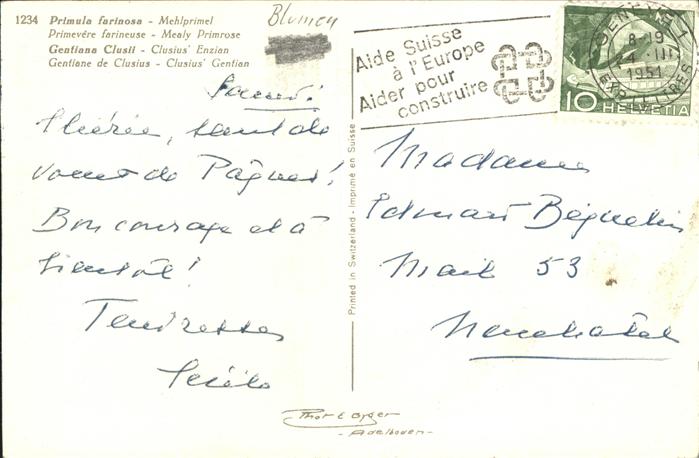 1234 Primula farinosa - Mehlprimel
Primevére farineuse - Mealy Primrose
Gentiana Clusii - Clusius' Enzian
Gentiane de Clusius - Clusius' Gentian
Blumen
Aide Suisse
à l'Europe
Aider pour
construire
8-19
1951
10 HELVETIA
Samedi.
Chérie, tant de
voeux de Pâques!
Bon courage et à
bientôt!
Tendresses
Printed in Switzerland - Imprimé en Suisse
Madame
Edouard Béguelin
Mail 53
Neuchâtel
Phot E Gyger
- Adelboden -